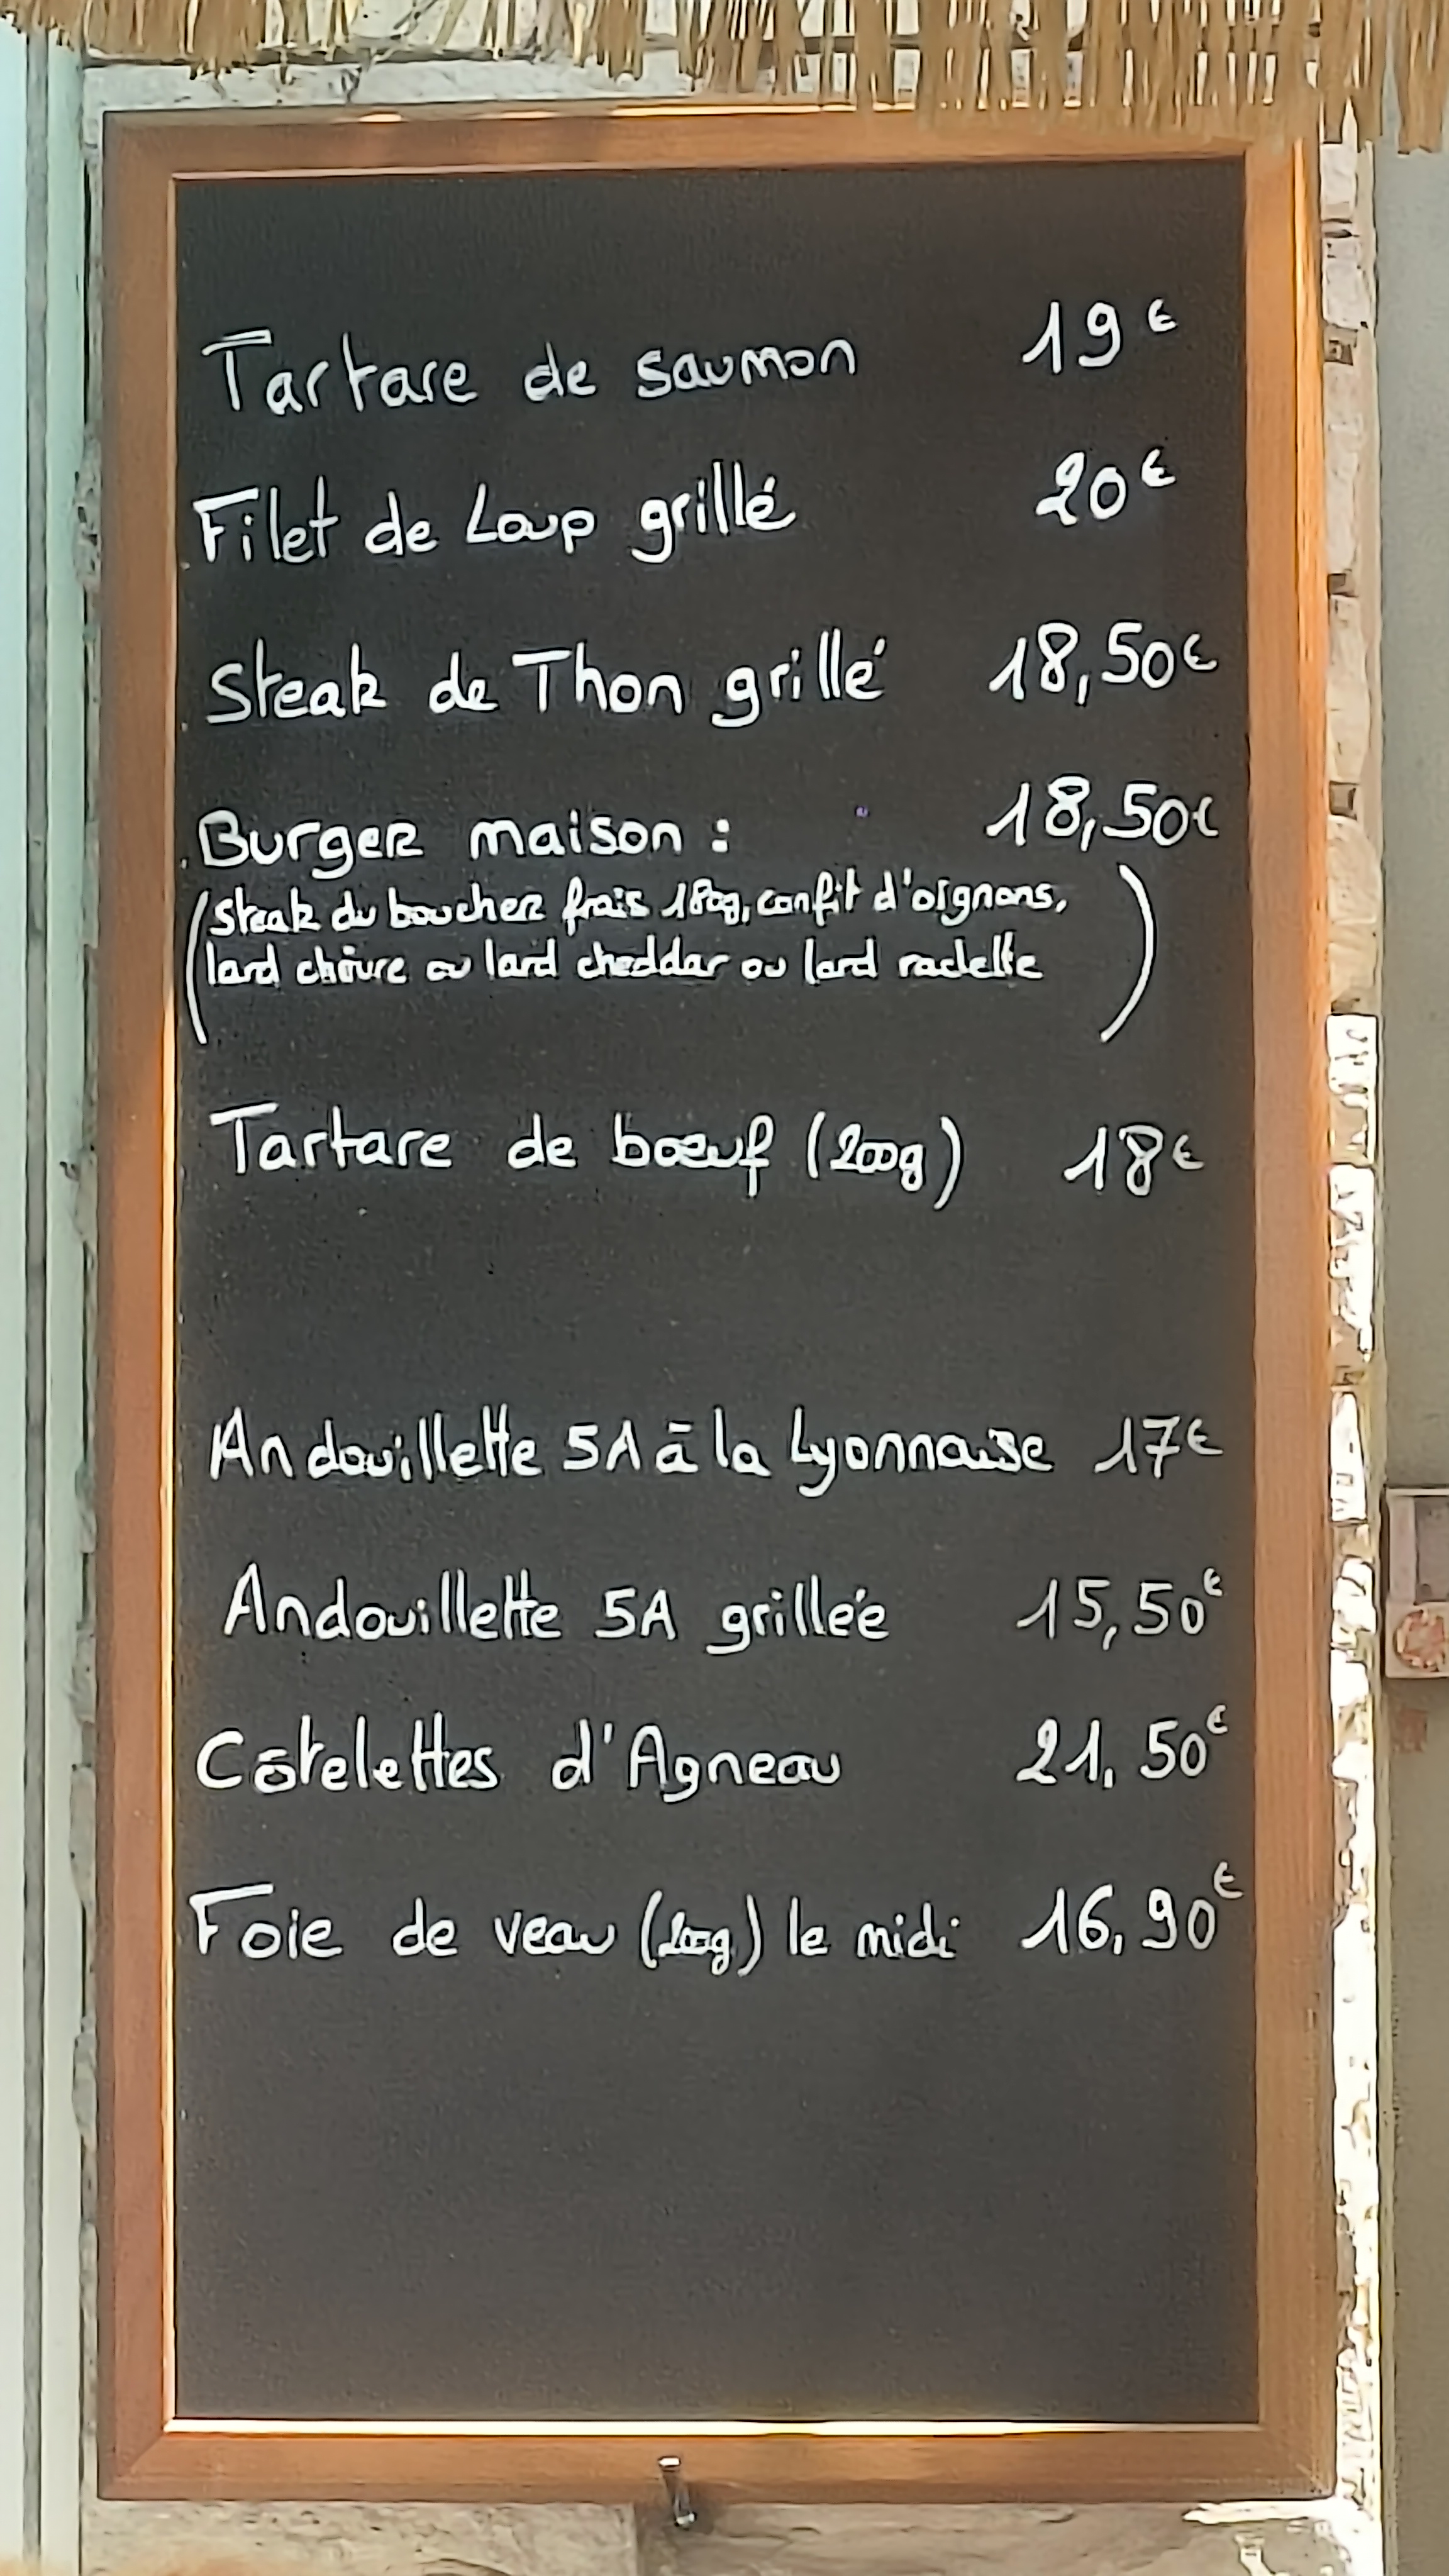 Tartare de saumon 19€
Filet de Loup grillé 20€
Steak de Thon grillé 18,50€
Burger maison : 18,50€
(steak du boucher frais 180g, confit d'oignons,
lard chèvre ou lard cheddar ou lard raclette)
Tartare de bœuf (200g) 18€
Andouillette 5A à la Lyonnaise 17€
Andouillette 5A grillée 15,50€
Côtelettes d'Agneau 21,50€
Foie de veau (200g) le midi 16,90€